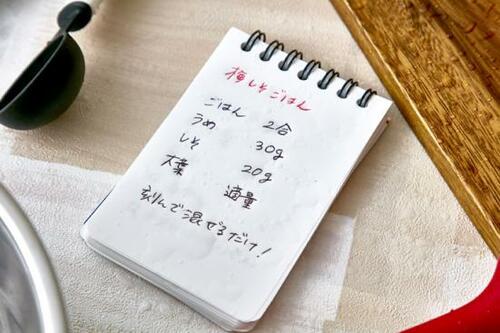 梅しそごはん
ごはん 2合
うめ 30g
しそ 20g
大葉 適量
刻んで混ぜるだけ!